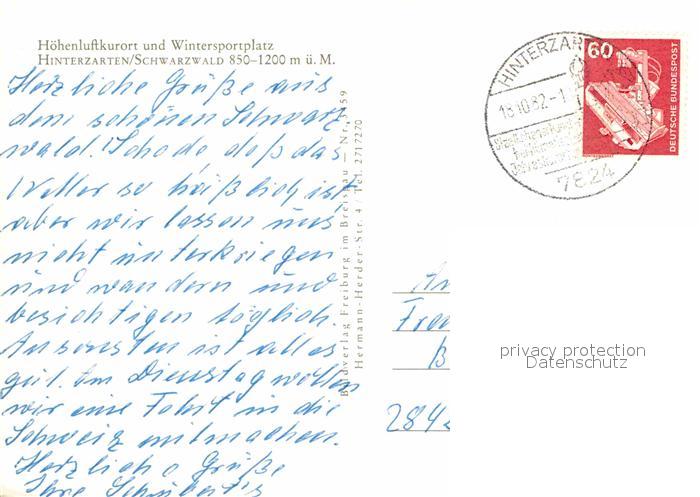 Höhenluftkurort und Wintersportplatz
HINTERZARTEN/SCHWARZWALD 850–1200 m ü. M.
Herzliche Grüße aus
dem schönen Schwarz
wald. Schade daß das
Wetter so häßlich ist
aber wir lassen uns
nicht unterkriegen
und wandern und
besichtigen täglich.
Ansonsten ist alles
gut. Am Dienstag wollen
wir eine Fahrt in die
Schweiz mitmachen.
Herzliche Grüße
Ihre Schubert's
Bildverlag Freiburg im Breisgau — Nr.
Hermann-Herder-Str. 4 / Tel. 2717270
HINTERZAR
18.10.82-1
7824
60
DEUTSCHE BUNDESPOST
An
B
284
privacy protection
Datenschutz